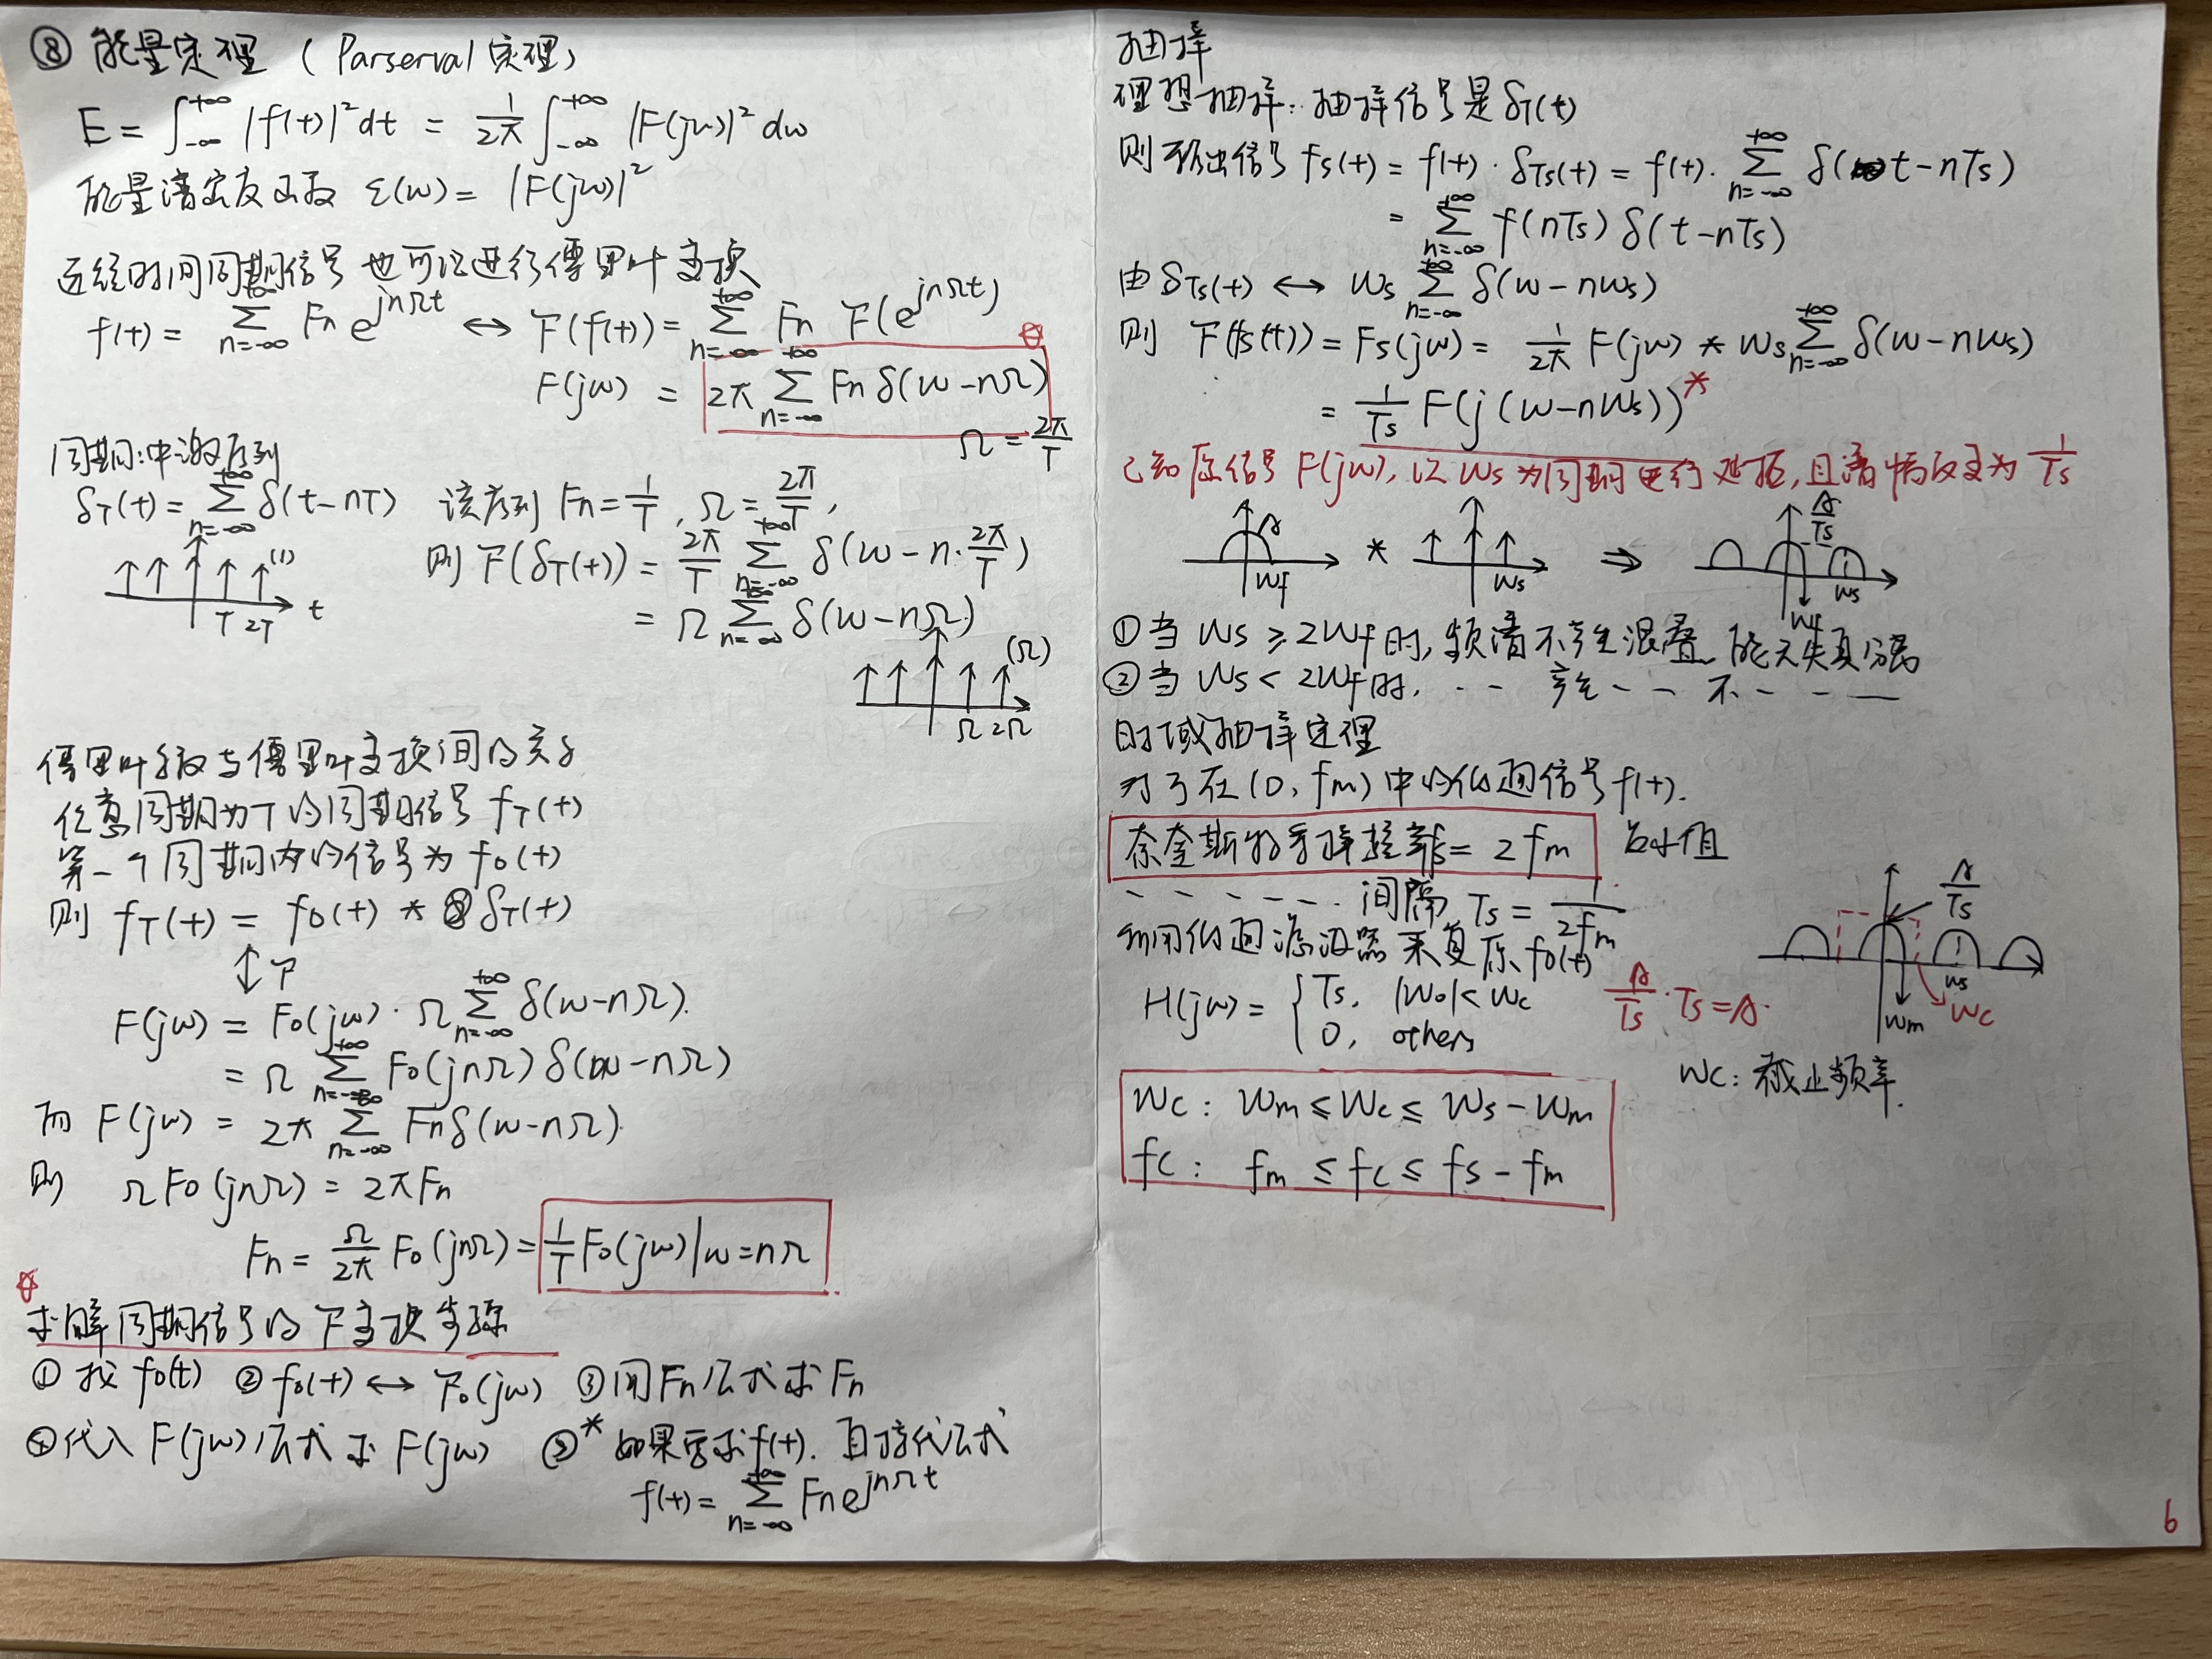 ⑧ 能量定理 (Parserval 定理)
E = ∫_{-∞}^{+∞} |f(t)|² dt = 1/2π ∫_{-∞}^{+∞} |F(jω)|² dω
能量谱密度函数 ε(ω) = |F(jω)|²
连续时间周期信号也可以进行傅里叶变换
f(t) = Σ_{n=-∞}^{+∞} Fn e^{jnΩt} ↔ F(f(t)) = Σ_{n=-∞}^{+∞} Fn F(e^{jnΩt})
F(jω) = 2π Σ_{n=-∞}^{+∞} Fn δ(ω-nΩ)
Ω = 2π/T
周期冲激序列
δT(t) = Σ_{n=-∞}^{+∞} δ(t-nT) 该序列 Fn = 1/T, Ω = 2π/T,
则 F(δT(t)) = 2π/T Σ_{n=-∞}^{+∞} δ(ω-n·2π/T)
= Ω Σ_{n=-∞}^{+∞} δ(ω-nΩ)
(1)
T 2T t
(Ω)
Ω 2Ω
傅里叶级数与傅里叶变换间的关系
任意周期为T的周期信号 fT(t)
第一个周期内的信号为 f0(t)
则 fT(t) = f0(t) * δT(t)
↕ F
F(jω) = F0(jω) · Ω Σ_{n=-∞}^{+∞} δ(ω-nΩ).
= Ω Σ_{n=-∞}^{+∞} F0(jnΩ) δ(ω-nΩ)
而 F(jω) = 2π Σ_{n=-∞}^{+∞} Fn δ(ω-nΩ).
则 ΩF0(jnΩ) = 2πFn
Fn = Ω/2π F0(jnΩ) = 1/T F0(jω)|ω=nΩ
求解周期信号的F变换步骤
① 找 f0(t) ② f0(t) ↔ F0(jω) ③ 用Fn公式求Fn
④ 代入F(jω)公式求F(jω) ⑤* 如果要求f(t). 直接代公式
f(t) = Σ_{n=-∞}^{+∞} Fn e^{jnΩt}
抽样
理想抽样: 抽样信号是 δT(t)
则输出信号 fs(t) = f(t) · δTs(t) = f(t) · Σ_{n=-∞}^{+∞} δ(t-nTs)
= Σ_{n=-∞}^{+∞} f(nTs) δ(t-nTs)
由 δTs(t) ↔ ωs Σ_{n=-∞}^{+∞} δ(ω-nωs)
则 F(fs(t)) = Fs(jω) = 1/2π F(jω) * ωs Σ_{n=-∞}^{+∞} δ(ω-nωs)
= 1/Ts F(j(ω-nωs)) *
已知原信号 F(jω), 以 ωs 为周期进行延拓, 且谱幅度变为 1/Ts
A ωf * ωs ⇒ A/Ts ωf ωs
① 当 ωs ≥ 2ωf 时, 频谱不产生混叠, 能无失真分离
② 当 ωs < 2ωf 时, - - 产生 - - 不 - - —
时域抽样定理
对于在 (0, fm) 中的低通信号 f(t).
奈奎斯特抽样频率 fs = 2fm 最小值
- - - - - - 间隔 Ts = 1/2fm
利用低通滤波器来复原 f0(t)
H(jω) = { Ts, |ω0| < ωc
0, others
A/Ts · Ts = A.
A/Ts
ωs
ωm ωc
ωc: 截止频率.
ωc: ωm ≤ ωc ≤ ωs - ωm
fc: fm ≤ fc ≤ fs - fm
6